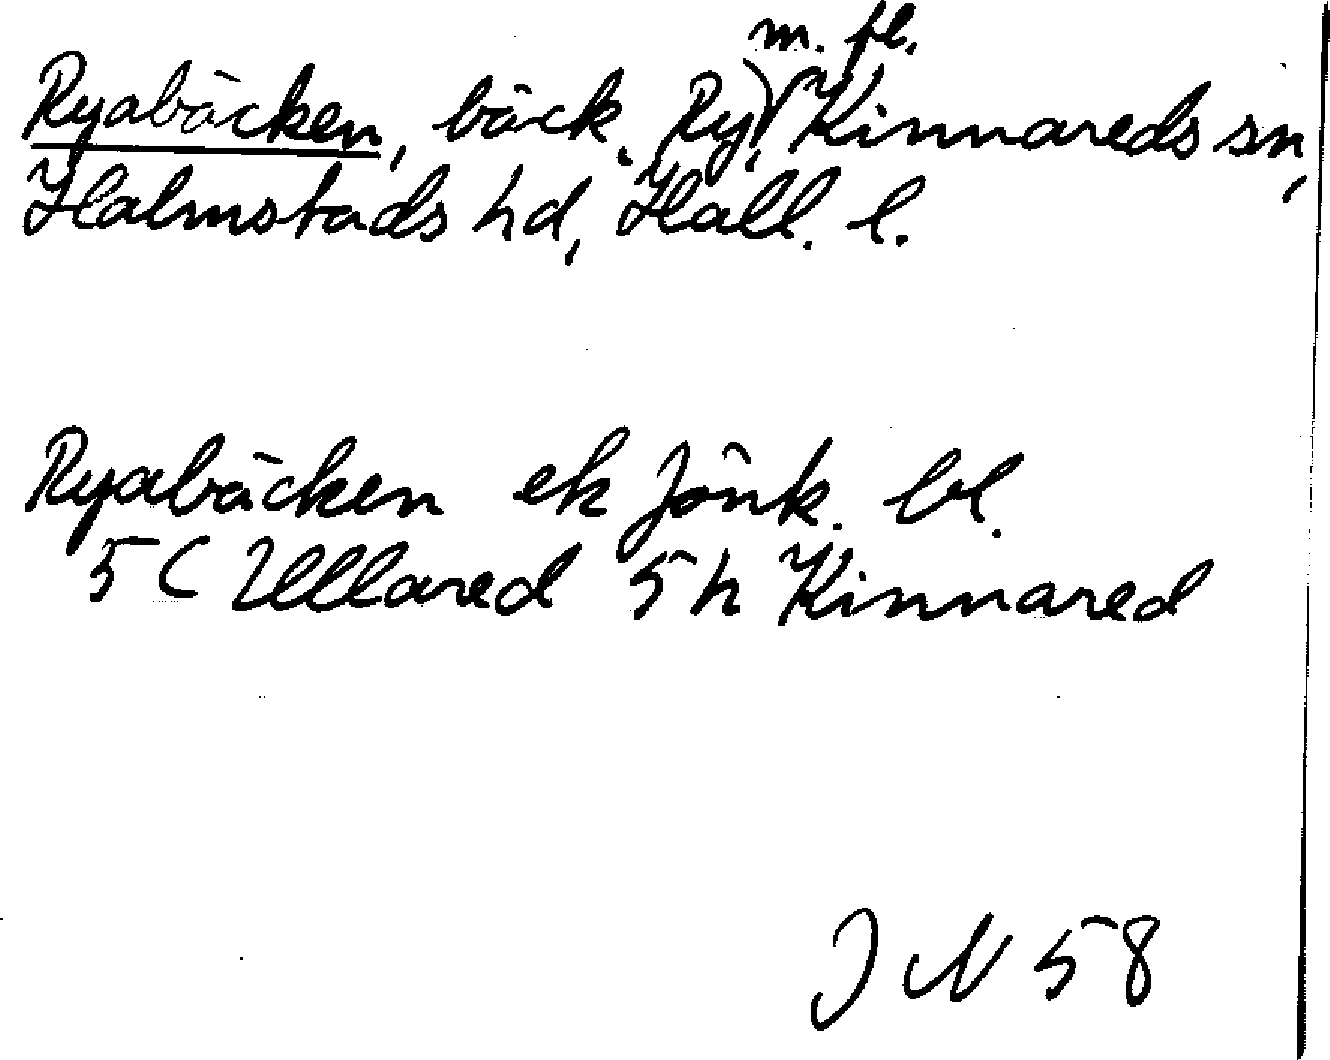 m. fl.
Ryabäcken, bäck. Ry, Kinnareds sn,
Halmstads hd, Hall. l.
Ryabäcken ek Jönk. bl.
5 C Ullared 5 h Kinnared
J N 58